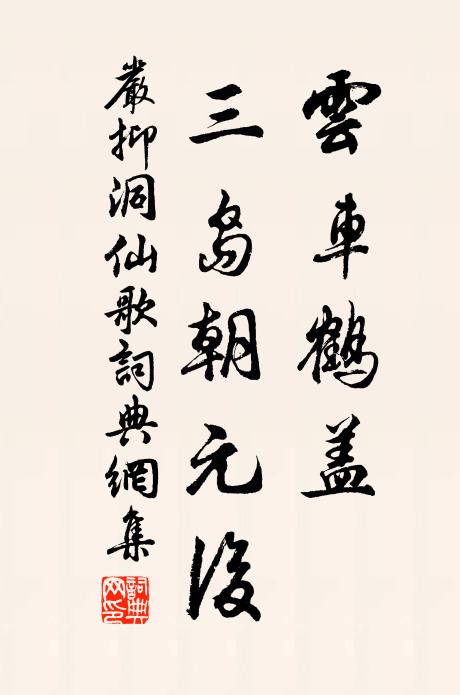 雲車鶴蓋
三島朝元後
嚴抑洞仙歌詞典網集
詞典網印